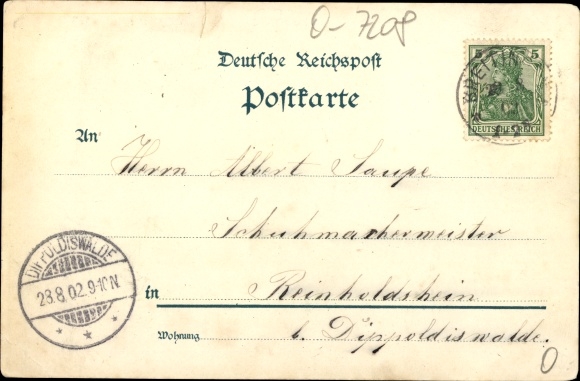 O-7208
Deutsche Reichspost
Postkarte
5 5
DEUTSCHES REICH
An
Herrn Albert Saupe
Schuhmachermeister
in Reinholdshein
Wohnung b. Dippoldiswalde.
DIPPOLDISWALDE
23.8.02.9-10N.
* * *
0